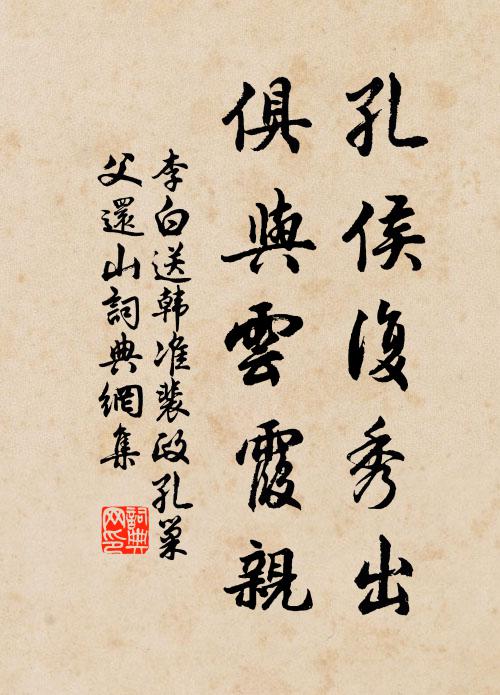 孔侯復秀出
俱與雲霞親
李白送韩准裴政孔巢
父還山詞典網集
詞典
网印